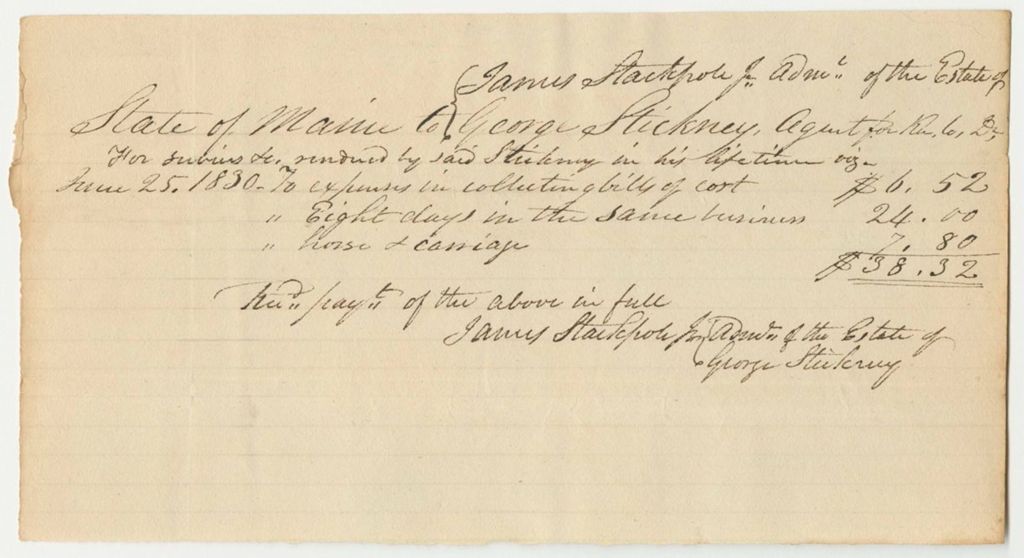 James Stackpole Jr. Admr. of the Estate of
State of Maine to George Stickney, Agent for Ken. Co. Dr,
For services &c. rendered by said Stickney in his lifetime viz-
June 25. 1830- To expenses in collecting bills of cost $6. 52
" Eight days in the same business 24. 00
" horse & carriage 7. 80
$38. 32
Recd. payt. of the above in full
James Stackpole Jr Admr. of the Estate of
George Stickney